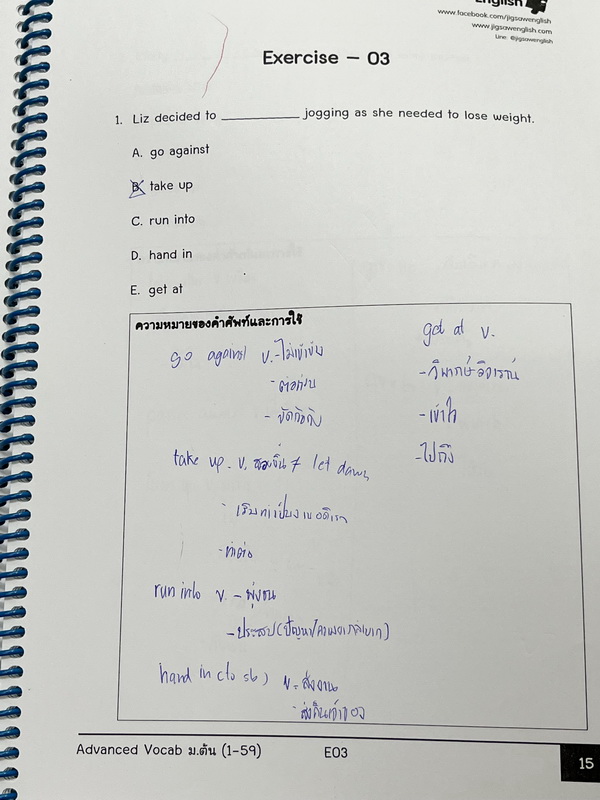 English
www.facebook.com/jigsawenglish
www.jigsawenglish.com
Line: @jigsawenglish
Exercise – 03
1. Liz decided to __________ jogging as she needed to lose weight.
A. go against
B. take up
C. run into
D. hand in
E. get at
ความหมายของคำศัพท์และการใช้
go against v. - ไม่เข้าข้าง
- ต่อต้าน
- ขัดแย้งกับ
take up - v. ≠ let down
- เริ่มทำเป็นงานอดิเรก
- ทำต่อ
run into v. - พุ่งชน
- ประสบ (ปัญหา/ความยากลำบาก)
hand in (to sb) v. - ส่งงาน
- ส่งคืนเจ้าของ
get at v.
- วิพากษ์วิจารณ์
- เข้าใจ
- ไปถึง
Advanced Vocab ม.ต้น (1-59)
E03
15